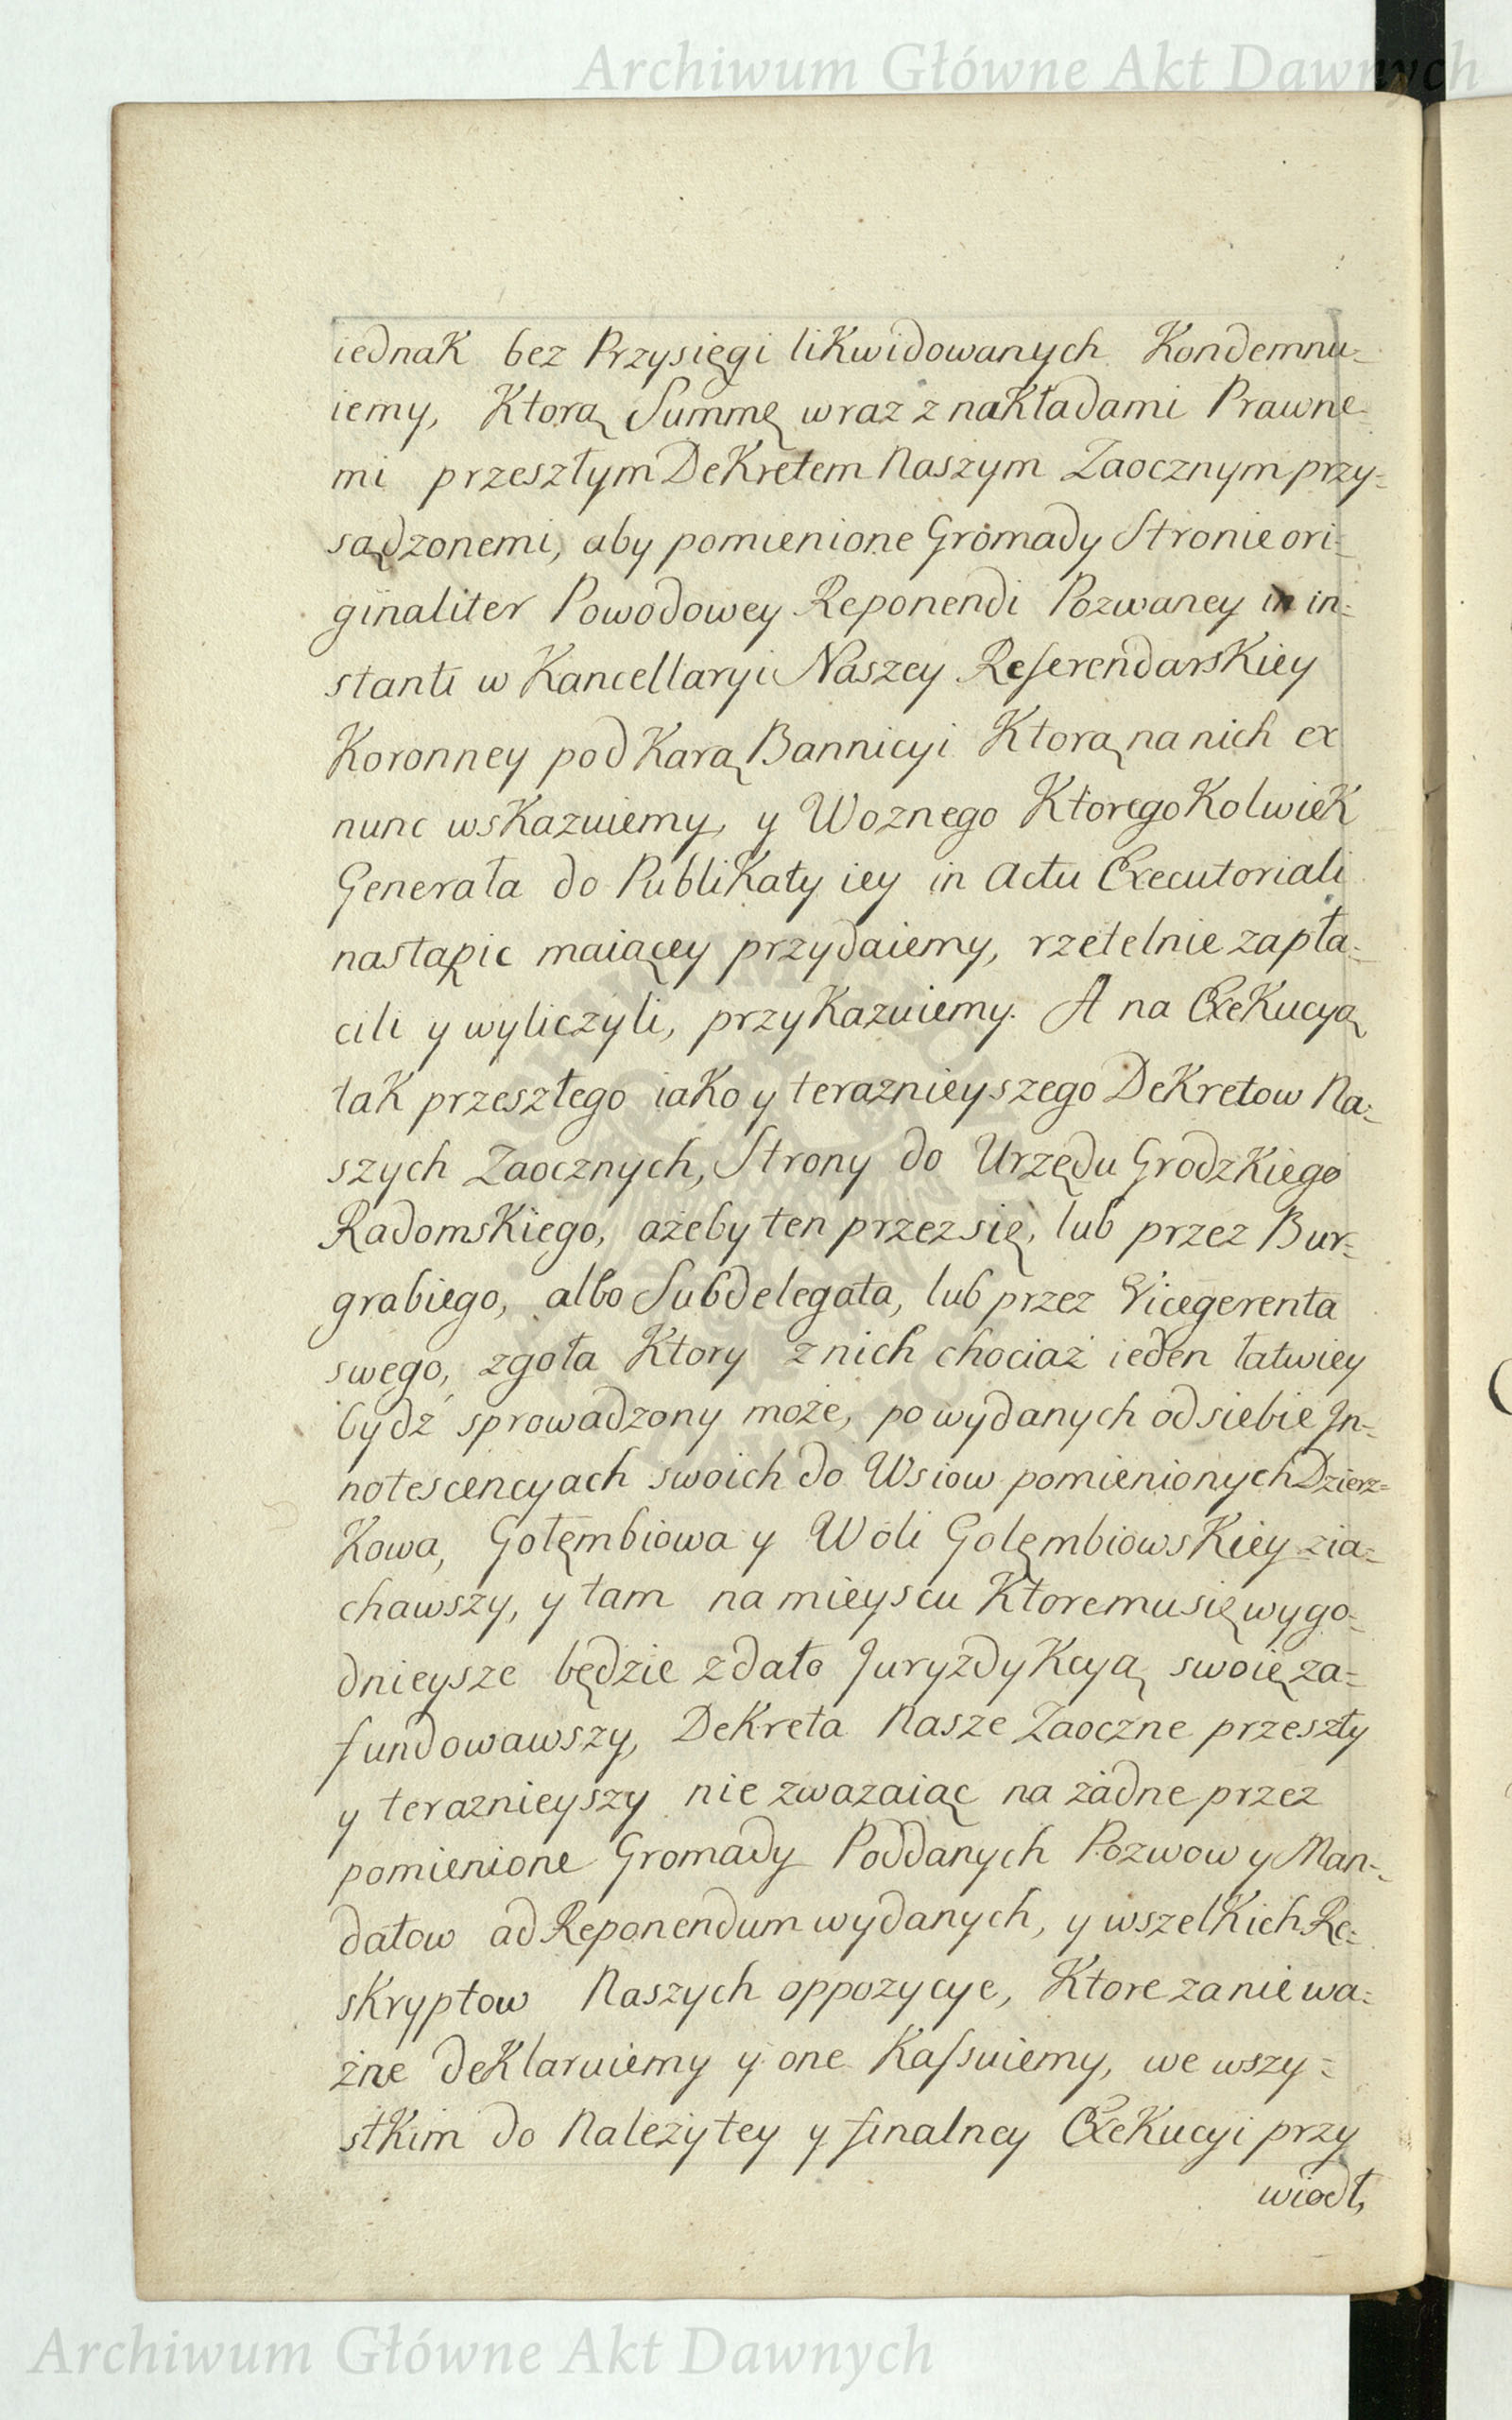 Archiwum Główne Akt Dawnych
iednak bez Przysięgi likwidowanych Kondemnu=
iemy, Ktorą Summę wraz z nakładami Prawne=
mi przeszłym Dekretem Naszym Zaocznym przy=
sądzonemi, aby pomienione Gromady Stronie ori=
ginaliter Powodowey Reponendi Pozwaney in in=
stanti w Kancellaryi Naszey Referendarskiey
Koronney pod Karą Bannicyi Ktorą na nich ex
nunc wskazuiemy, y Woznego Ktoregokolwiek
Generała do Publikaty iey in Actu Executoriali
nastąpic maiącey przydaiemy, rzetelnie zapła=
cili y wyliczyli, przykazuiemy. A na Exekucyą
tak przeszłego iako y teraznieyszego Dekretow Na=
szych Zaocznych, Strony do Urzędu Grodzkiego
Radomskiego, ażeby ten przez się, lub przez Bur=
grabiego, albo Subdelegata, lub przez Vicegerenta
swego, zgoła Ktory z nich chociaż ieden łatwiey
bydź sprowadzony może, po wydanych od siebie In=
notescencyach swoich do Wsiow pomienionych Dzierz=
kowa, Gołęmbiowa y Woli Golęmbiowskiey zia=
chawszy, y tam na mieyscu Ktoremu się wygo=
dnieysze będzie zdało Juryzdykcyą swoię za=
fundowawszy, Dekreta Nasze Zaoczne przeszły
y teraznieyszy nie zwazaiąc na żadne przez
pomienione Gromady Poddanych Pozwow y Man=
datow ad Reponendum wydanych, y wszelkich Re=
skryptow Naszych oppozycye, Ktore za nie wa=
żne deklaruiemy y one Kassuiemy, we wszy=
stkim do Należytey y finalney Exekucyi przy
wiodł,
Archiwum Główne Akt Dawnych